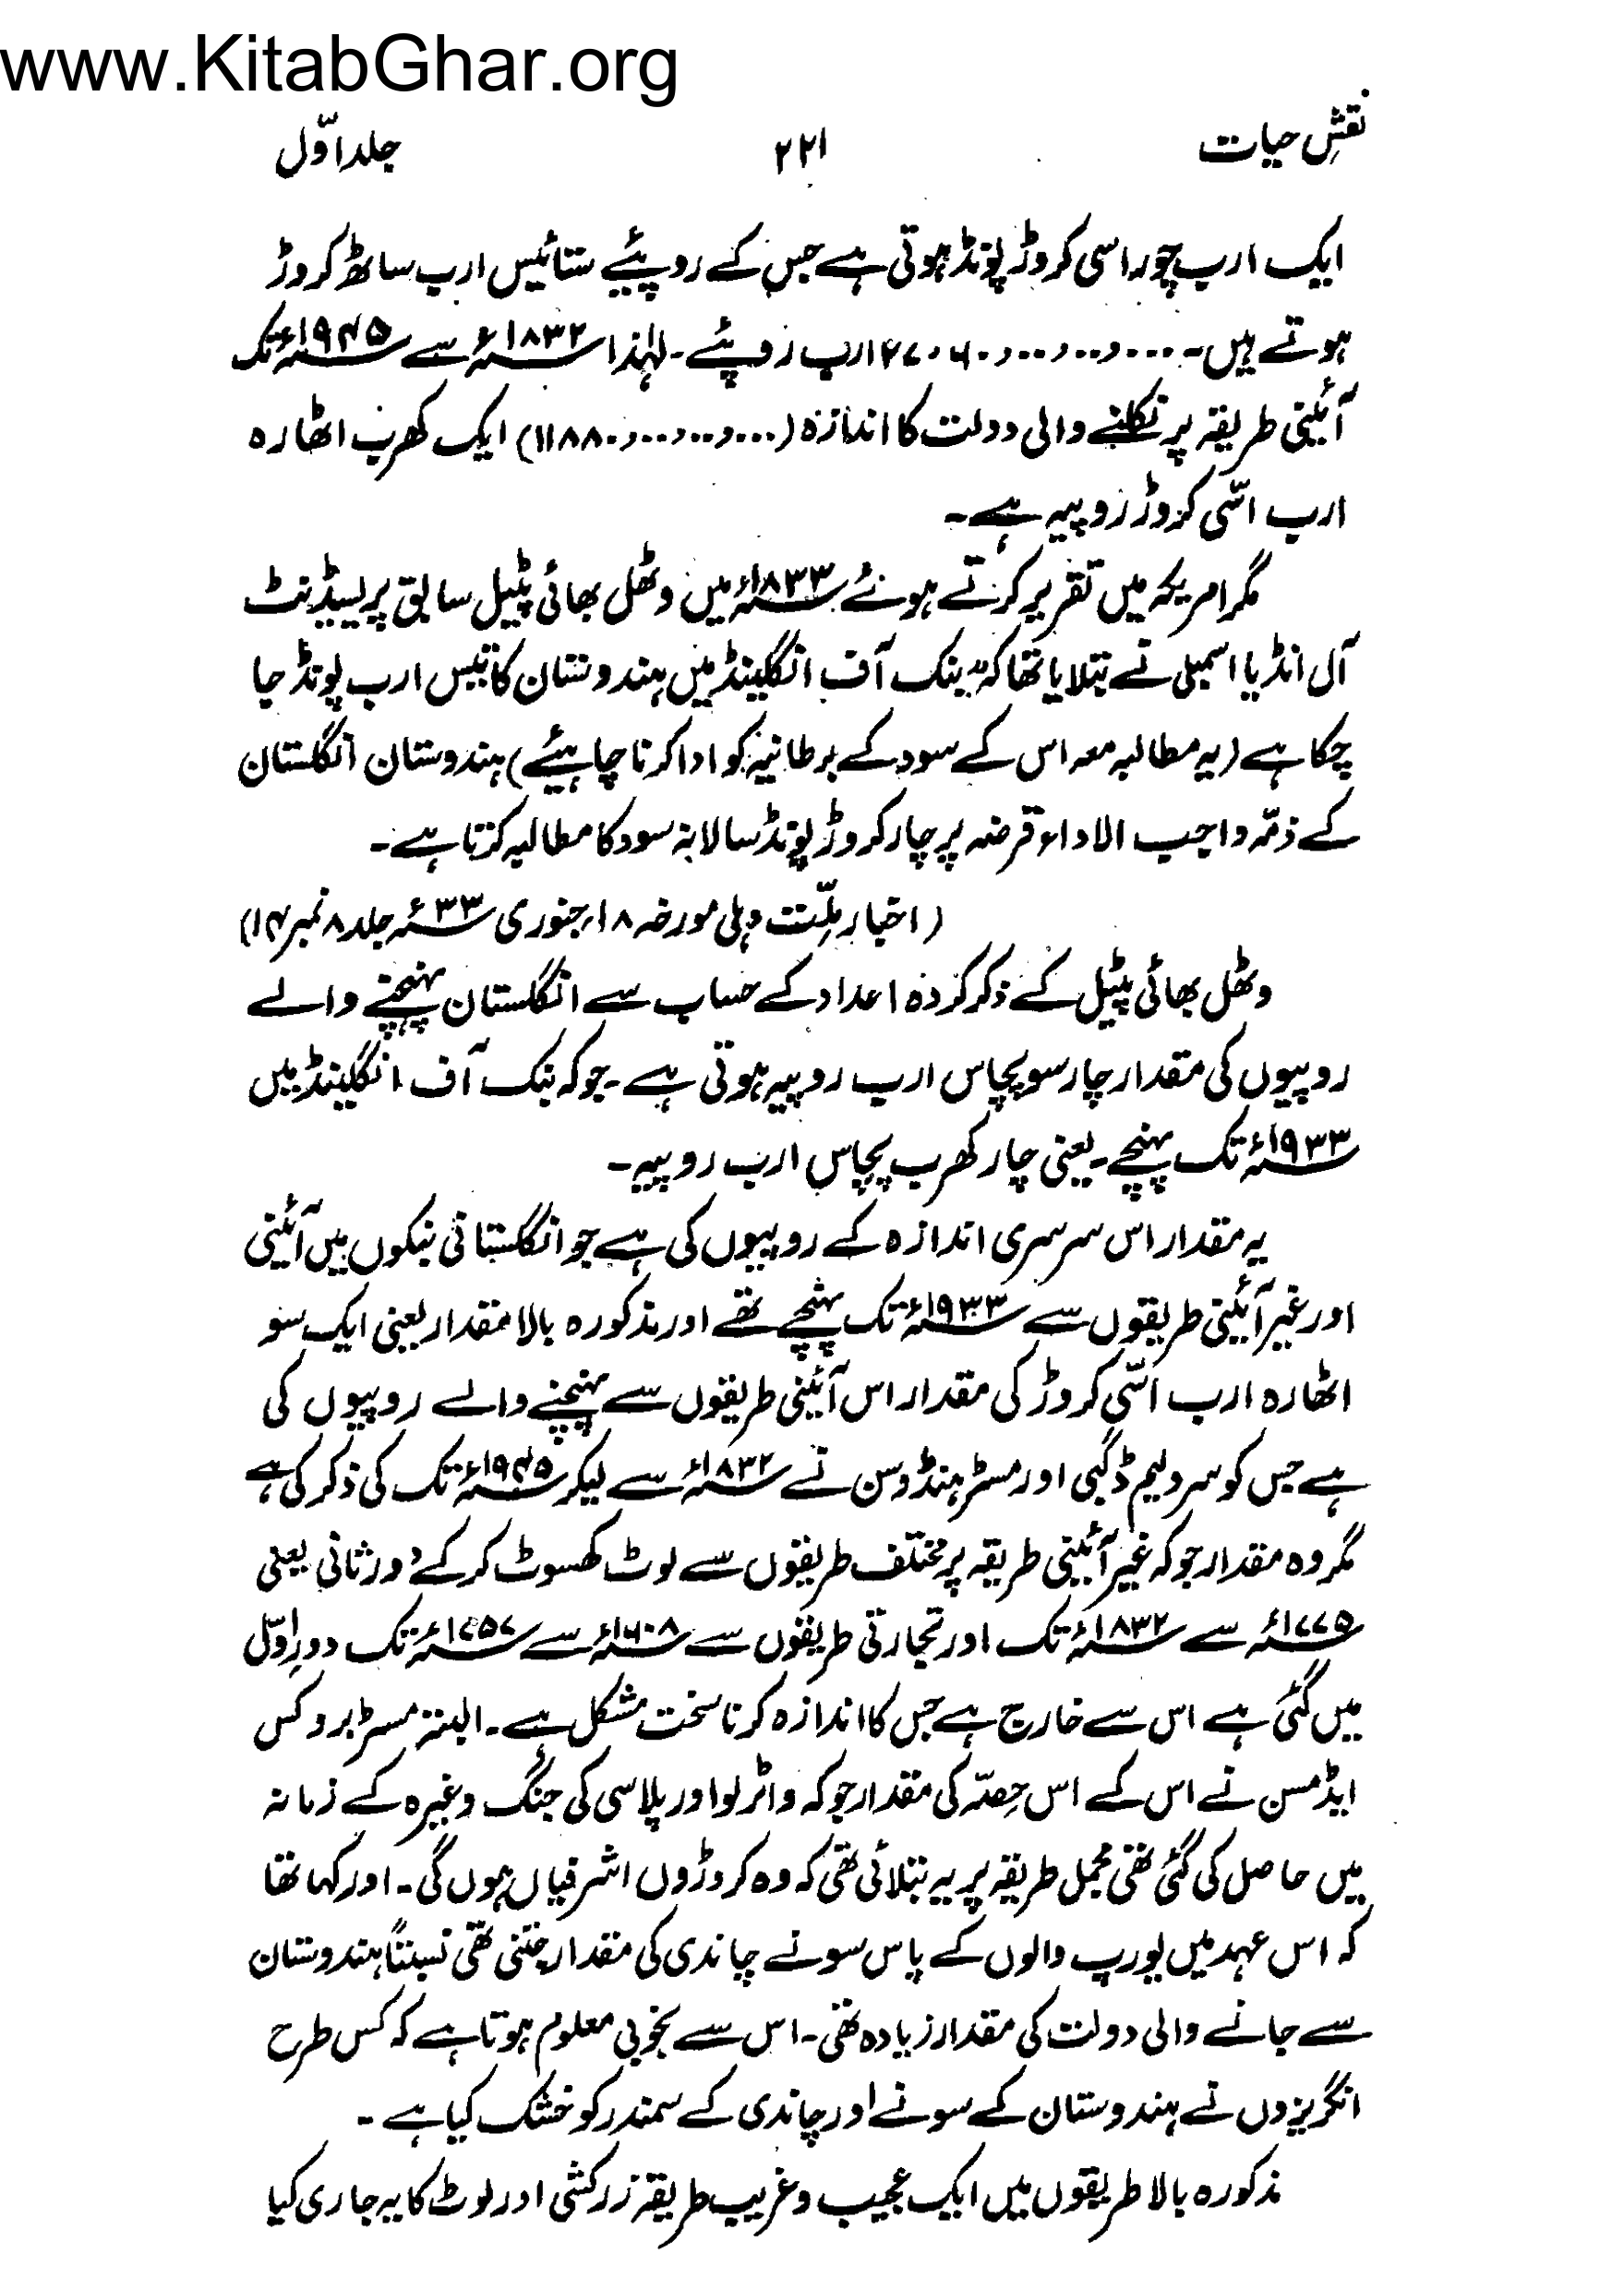 www.KitabGhar.org
نقشِ حیات ۲۲۱ جلد اوّل
ایک ارب چوراسی کروڑ پونڈ ہوتی ہے جس کے روپیئے ستائیس ارب ساٹھ کروڑ
ہوتے ہیں۔ ۲۷۰۶۰٫۰۰۰٫۰۰٫۰۰۰ ارب روپئے۔ لہٰذا ۱۸۳۲ء سے ۱۹۴۵ء تک
آئینی طریقہ پر نکلنے والی دولت کا اندازہ (۱۱۸۸۰٫۰۰٫۰۰٫۰۰۰) ایک کھرب اٹھارہ
ارب اسّی کروڑ روپیہ ہے۔
مگر امریکہ میں تقریر کرتے ہوئے ۱۸۳۳ء میں وٹھل بھائی پٹیل سابق پریسیڈنٹ
آل انڈیا اسمبلی نے بتلایا تھا کہ "بنک آف انگلینڈ میں ہندوستان کا تیس ارب پونڈ جا
چکا ہے (یہ مطالبہ معہ اس کے سود کے برطانیہ کو ادا کرنا چاہیئے) ہندوستان انگلستان
کے ذمّہ واجب الاداء قرضہ پر چار کروڑ پونڈ سالانہ سود کا مطالبہ کرتا ہے۔
(اخبار ملّت دہلی مورخہ ۱۸ جنوری ۳۳ء جلد ۸ نمبر ۱۴)
وٹھل بھائی پٹیل کے ذکر کردہ اعداد کے حساب سے انگلستان پہنچنے والے
روپیوں کی مقدار چار سو پچاس ارب روپیہ ہوتی ہے۔ جو کہ بنک آف انگلینڈ میں
۱۹۳۳ء تک پہنچے۔ یعنی چار کھرب پچاس ارب روپیہ۔
یہ مقدار اس سرسری اندازہ کے روپیوں کی ہے جو انگلستانی بنکوں میں آئینی
اور غیر آئینی طریقوں سے ۱۹۳۳ء تک پہنچے تھے اور مذکورہ بالا مقدار یعنی ایک سو
اٹھارہ ارب اسّی کروڑ کی مقدار اس آئینی طریقوں سے پہنچنے والے روپیوں کی
ہے جس کو سر ولیم ڈگبی اور مسٹر ہنڈوسن نے ۱۸۳۲ء سے لیکر ۱۹۴۵ء تک کی ذکر کی ہے
مگر وہ مقدار جو کہ غیر آئینی طریقہ پر مختلف طریقوں سے لوٹ کھسوٹ کر کے دور ثانی یعنی
۱۷۷۵ء سے ۱۸۳۲ء تک اور تجارتی طریقوں سے ۱۶۰۸ء سے ۱۷۵۷ء تک دورِ اوّل
میں گئی ہے اس سے خارج ہے جس کا اندازہ کرنا سخت مشکل ہے۔ البتہ مسٹر بروکس
ایڈمسن نے اس کے اس حِصّہ کی مقدار جو کہ واٹرلو اور پلاسی کی جنگ وغیرہ کے زمانہ
میں حاصل کی گئی تھی مجمل طریقہ پر یہ بتلائی تھی کہ وہ کروڑوں اشرفیاں ہوں گی۔ اور کہا تھا
کہ اس عہد میں یورپ والوں کے پاس سونے چاندی کی مقدار جتنی تھی نسبتاً ہندوستان
سے جانے والی دولت کی مقدار زیادہ تھی۔ اس سے بخوبی معلوم ہوتا ہے کہ کس طرح
انگریزوں نے ہندوستان کے سونے اور چاندی کے سمندر کو خشک کیا ہے۔
مذکورہ بالا طریقوں میں ایک عجیب و غریب طریقہ زرکشی اور لوٹ کا یہ جاری کیا